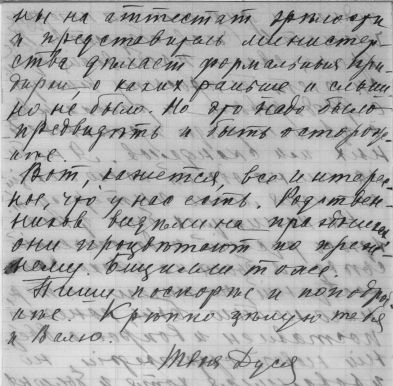 ны на аттестат зрелости
и представитель министер-
ства делает формальныя при-
дирки, о каких раньше и слыш-
но не было. Но это надо было
предвидѣть и быть осторож-
нѣе.
Вот, кажется, все интерес-
ное, что у нас есть. Родствен-
ников видѣли на праздниках
они процвѣтают по преж-
нему. Знакомые тоже.
Пиши поскорѣе и поподроб-
нѣе. Крѣпко цѣлую тебя
и Валю.
Твоя Дуся